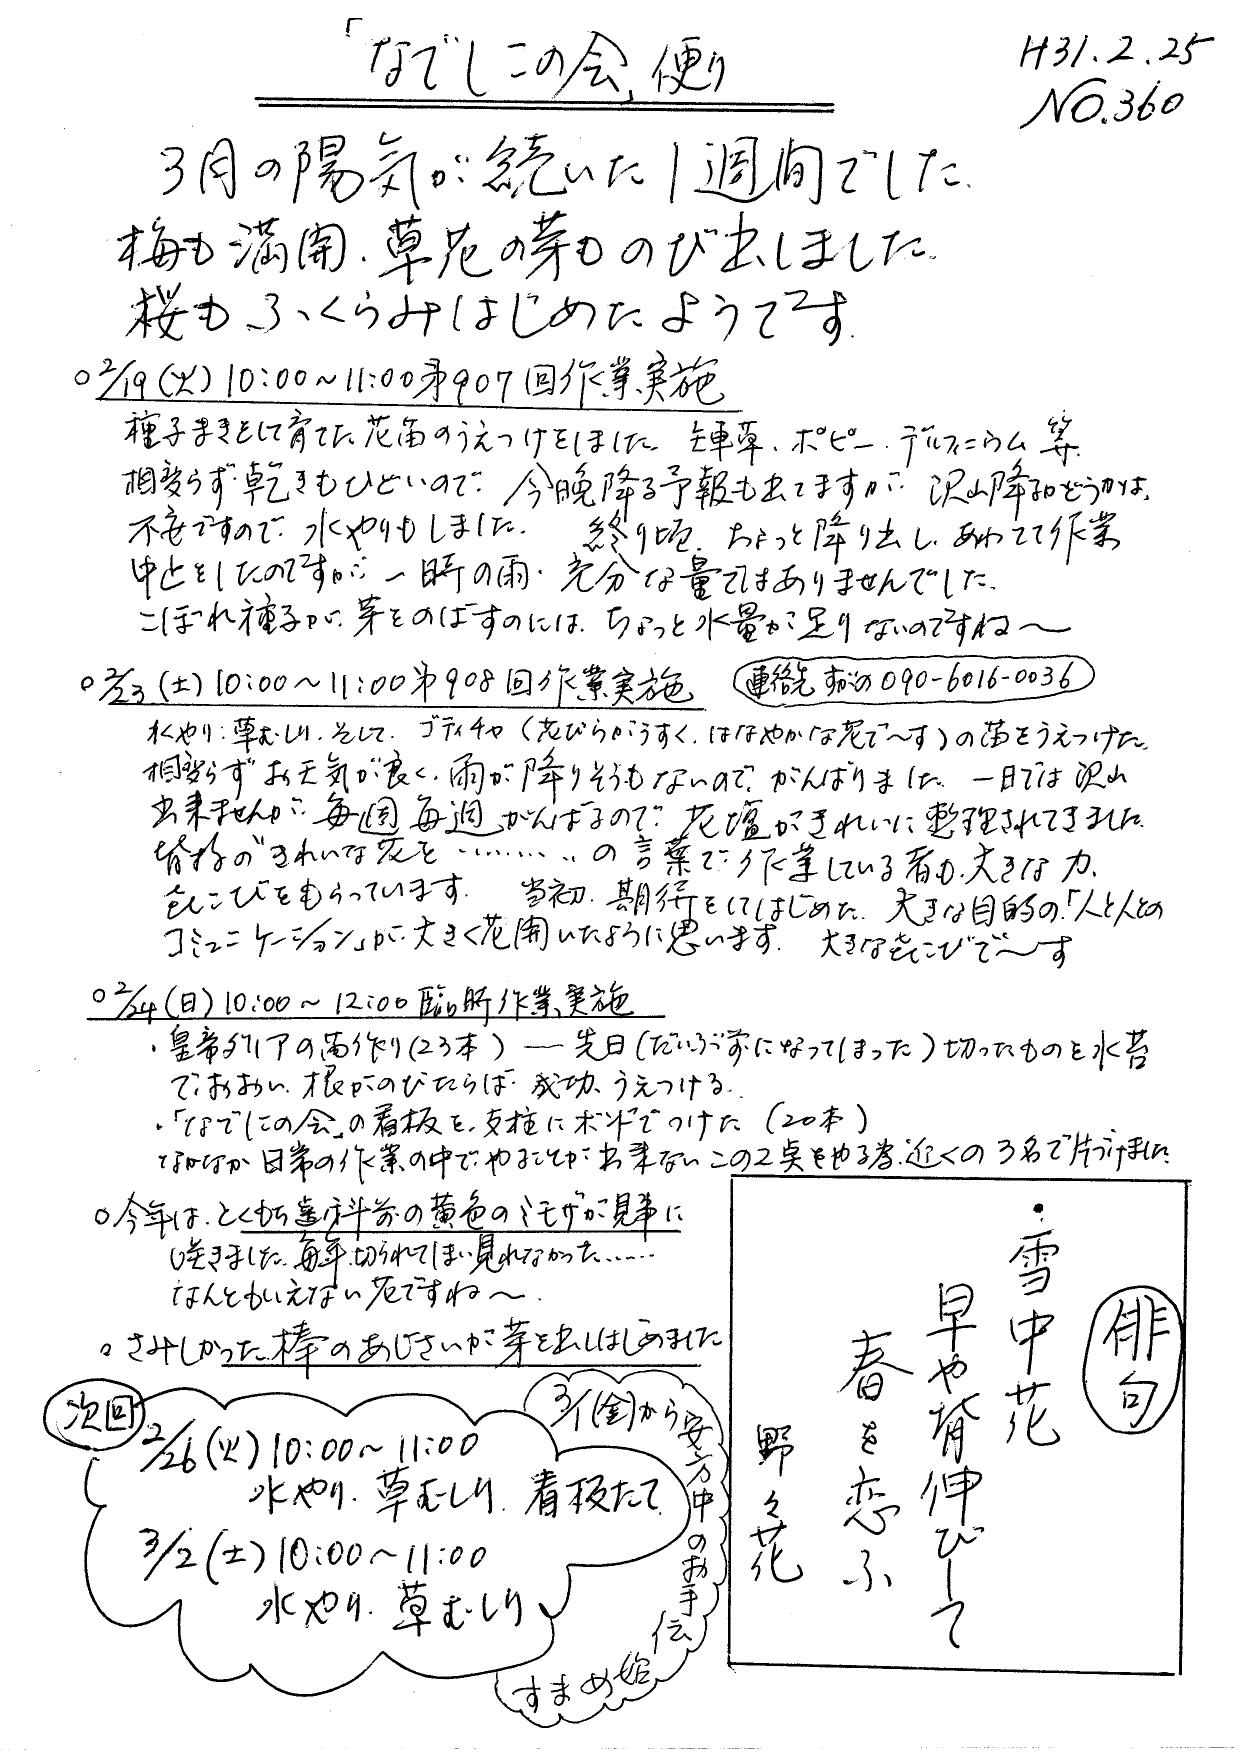 「なでしこの会」便り
H31.2.25
NO.360
3月の陽気が続いた1週間でした.
梅も満開.草花の芽ものび出しました.
桜もふっくらみはじめたようです.
○2/19(火)10:00~11:00第907回作業実施
種子まきをして育てた花苗のうえつけをしました.矢車草.ポピー.デルフィニウム等.
相変らず乾きもひどいので.今晩降る予報も出てますが.沢山降るかどうかは.
不安ですので.水やりもしました.終り頃.ちょっと降り出し.あわてて作業
中止をしたのですが.一時の雨.充分な量ではありませんでした.
こぼれ種子が.芽をのばすのには.ちょっと水量が足りないのですね〜
○2/23(土)10:00~11:00第908回作業実施
連絡先すがの090-6016-0036
水やり.草むしり.そして.ゴデチャ(花びらがうすく.はなやかな花で〜す)の苗をうえつけた.
相変らずお天気が良く.雨が降りそうもないので.がんばりました.一日では沢山
出来ませんが.毎週毎週がんばるので.花壇がきれいに整理されてきました.
皆様の"きれいな花を………..の言葉で.作業している者も.大きな力.
喜こびをもらっています.当初.期待をしてはじめた.大きな目的の「人と人との
コミュニケーション」が.大きく花開いたように思います.大きな喜こびで〜す
○2/24(日)10:00~12:00臨時作業実施
・皇帝ダリアの苗作り(23本)―先日(だいぶ前になってしまった)切ったものを水苔
でおおい.根がのびたらば.成功.うえつける.
・「なでしこの会」の看板を.支柱にボンドでつけた(20本)
なかなか日常の作業の中でやることが出来ないこの2点をやる為.近くの3名で片づけました.
○今年は.とくもち歯科前の黄色のミモザが見事に
咲きました.毎年.切られてしまい見れなかった……
なんともいえない花ですね〜.
○さみしかった棒のあじさいが芽を出しはじめました
次回
2/26(火)10:00~11:00
水やり.草むしり.看板たて
3/2(土)10:00~11:00
水やり.草むしり
3/1(金)から安方中のお手伝
すまめ始
俳句
・雪中花
早や背伸びして
春を恋ふ
野々花